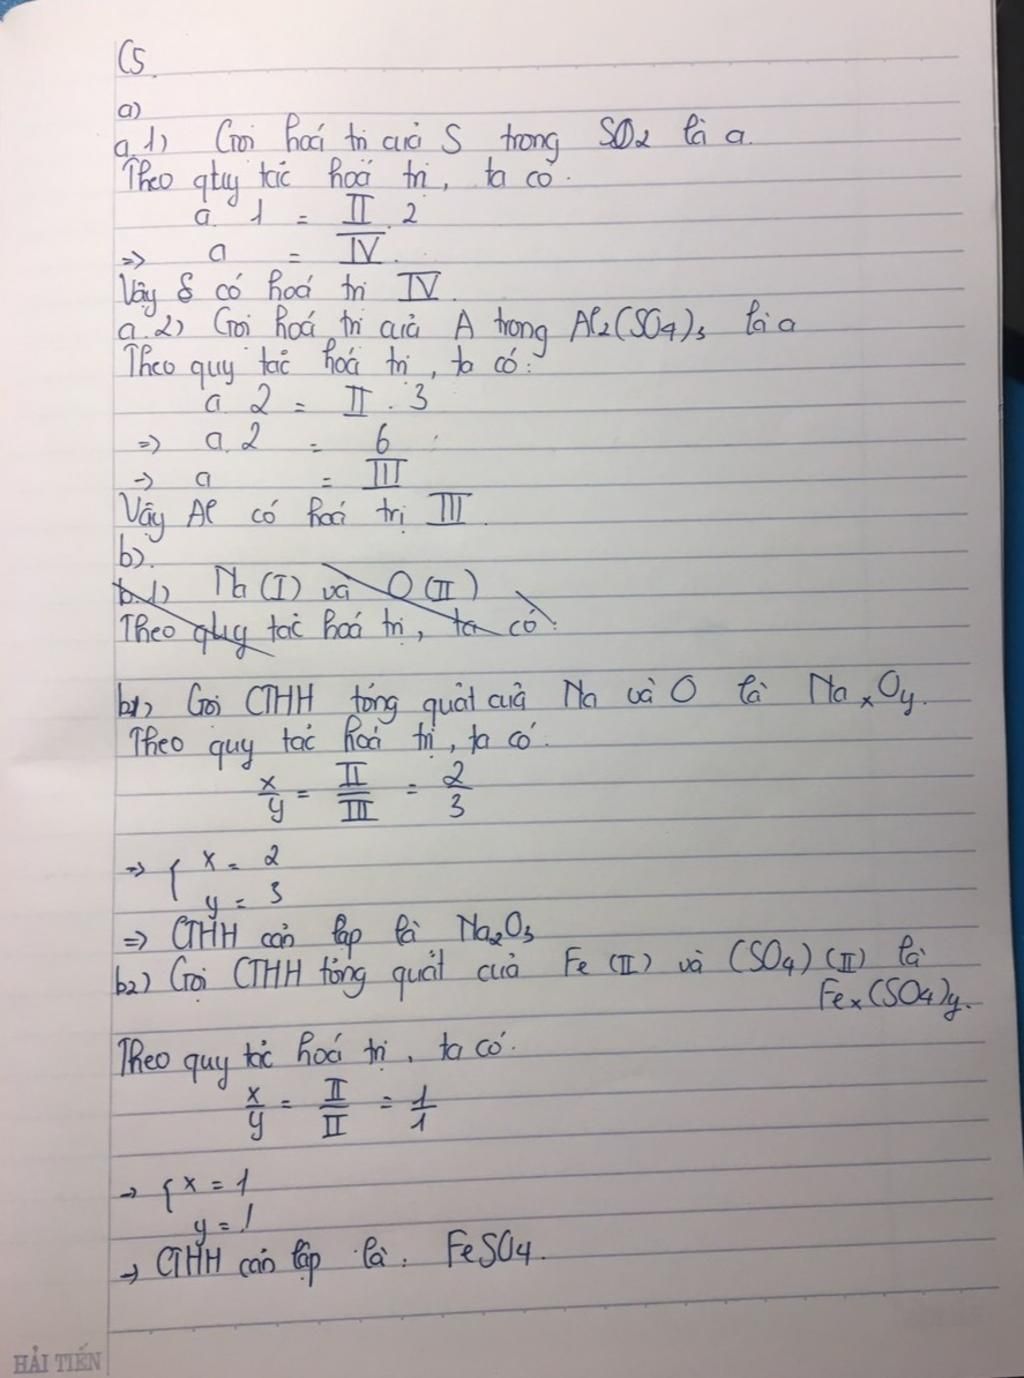 C5.
a)
a.1) Gọi hoá trị của S trong SO2 là a.
Theo quy tắc hoá trị, ta có.
a. 1 = II . 2
=> a = IV.
Vậy S có hoá trị IV.
a.2) Gọi hoá trị của A trong Al2(SO4)3 là a
Theo quy tắc hoá trị, ta có:
a 2 = II . 3
=> a.2 = 6
-> a = III
Vậy Al có hoá trị III.
b).
b.1) Na (I) và O (II)
Theo quy tắc hoá trị, ta có:
b1) Gọi CTHH tổng quát của Na và O là NaxOy.
Theo quy tắc hoá trị, ta có.
x/y = II/III = 2/3
=> { x = 2
y = 3
=> CTHH cần lập là Na2O3
b2) Gọi CTHH tổng quát của Fe (II) và (SO4) (II) là
Fex(SO4)y.
Theo quy tắc hoá trị, ta có.
x/y = II/II = 1/1
-> { x = 1
y = 1
-> CTHH cần lập là: FeSO4.
HẢI TIẾN